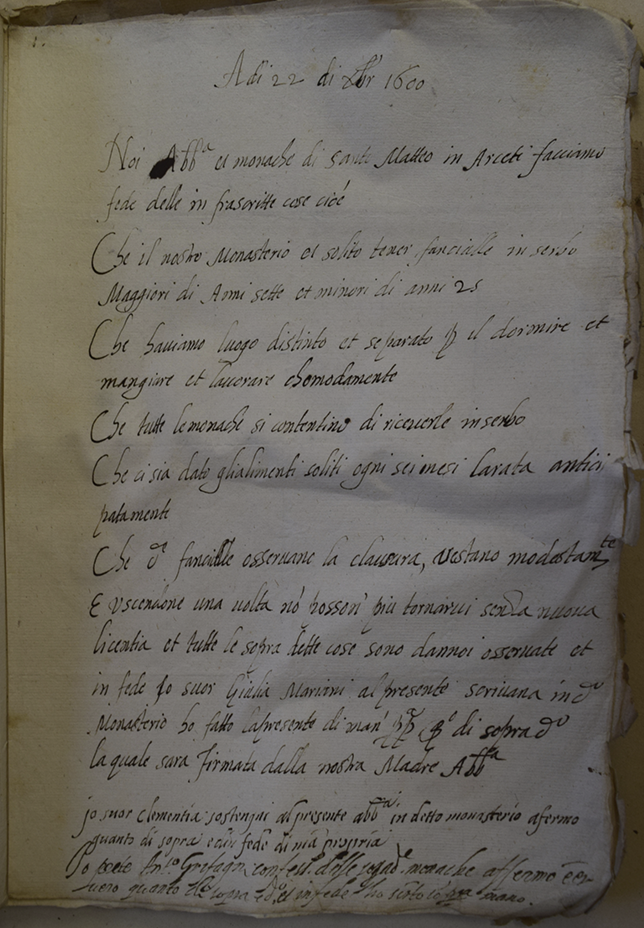 Adi 22 di Xbr 1600
Noi Abb.a et monache di santo Matteo in Arceti facciamo
fede delle in frascritte cose cioè
Che il nostro Monasterio è solito tener fanciulle in serbo
Maggiori di Anni sette et minori di anni 25
Che haviamo luogo distinto et separato p il dormire et
mangiare et lavorare chomodamente
Che tutte le monache si contentino di riceverle in serbo
Che ci sia dato gli alimenti soliti ogni sei mesi la rata antici
patamente
Che d.e fanciulle osservano la clausura, vestano modestam.te
E uscendone una volta nō posson' più tornarvi senza nuova
licentia et tutte le sopra dette cose sono da noi osservate et
in fede Io suor Giulia Mariani al presente scrivana in d.o
Monasterio ho fatto la presente di man' pp.a di sopra d.o
la quale sara firmata dalla nostra Madre Abb.a
jo suor clementia sostenjni al presente abb.a in detto monasterio afermo
quanto di sopra fede di mia propria
Io prete Ant.o confess. delle monache affermo
vero quanto di sopra et in fede ho mano.